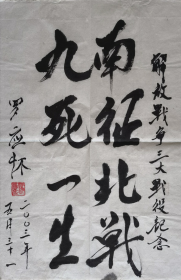 解放战争三大战役纪念
南征北戰
九死一生
二〇〇三年
五月三十一
罗应怀